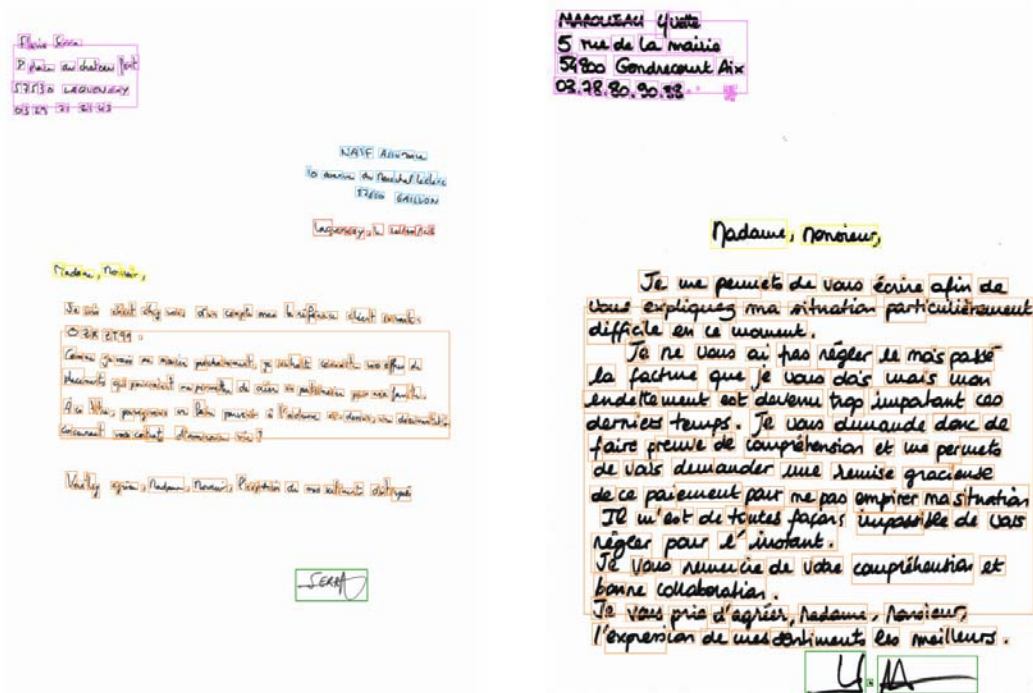 Flavie Serra
place du chateau
57530 LAQUENEXY
03 29 21 21 43
NAIF Assurance
10 avenue du Maréchal Leclerc
GAILLON
Laquenexy, le
Madame, Monsieur,
Je suis client chez vous d'un compte sous la référence client suivante:
Comme je vais me marier prochainement, je souhaite connaître vos offres de
placements qui pourraient me permettre de créer un patrimoine pour ma famille.
A ce titre, pourriez-vous me faire parvenir à l'adresse ci-dessus, un
concernant vos contrat d'assurance vie?
Veuillez agréer, Madame, Monsieur, l'expression de mes sentiments distingués
SERRA
MAROUZEAU Yvette
5 rue de la mairie
54800 Gondrecourt Aix
03.78.80.90.98.
Madame, Monsieur,
Je me permets de vous écrire afin de
vous expliquez ma situation particulièrement
difficile en ce moment.
Je ne vous ai pas régler le mois passé
la facture que je vous dois mais mon
endettement est devenu trop important ces
derniers temps. Je vous demande donc de
faire preuve de compréhension et me permets
de vous demander une remise gracieuse
de ce paiement pour ne pas empirer ma situation
Il m'est de toutes façons impossible de vous
régler pour l'instant.
Je vous remercie de votre compréhension et
bonne collaboration.
Je vous prie d'agréer, Madame, Monsieur,
l'expression de mes sentiments les meilleurs.